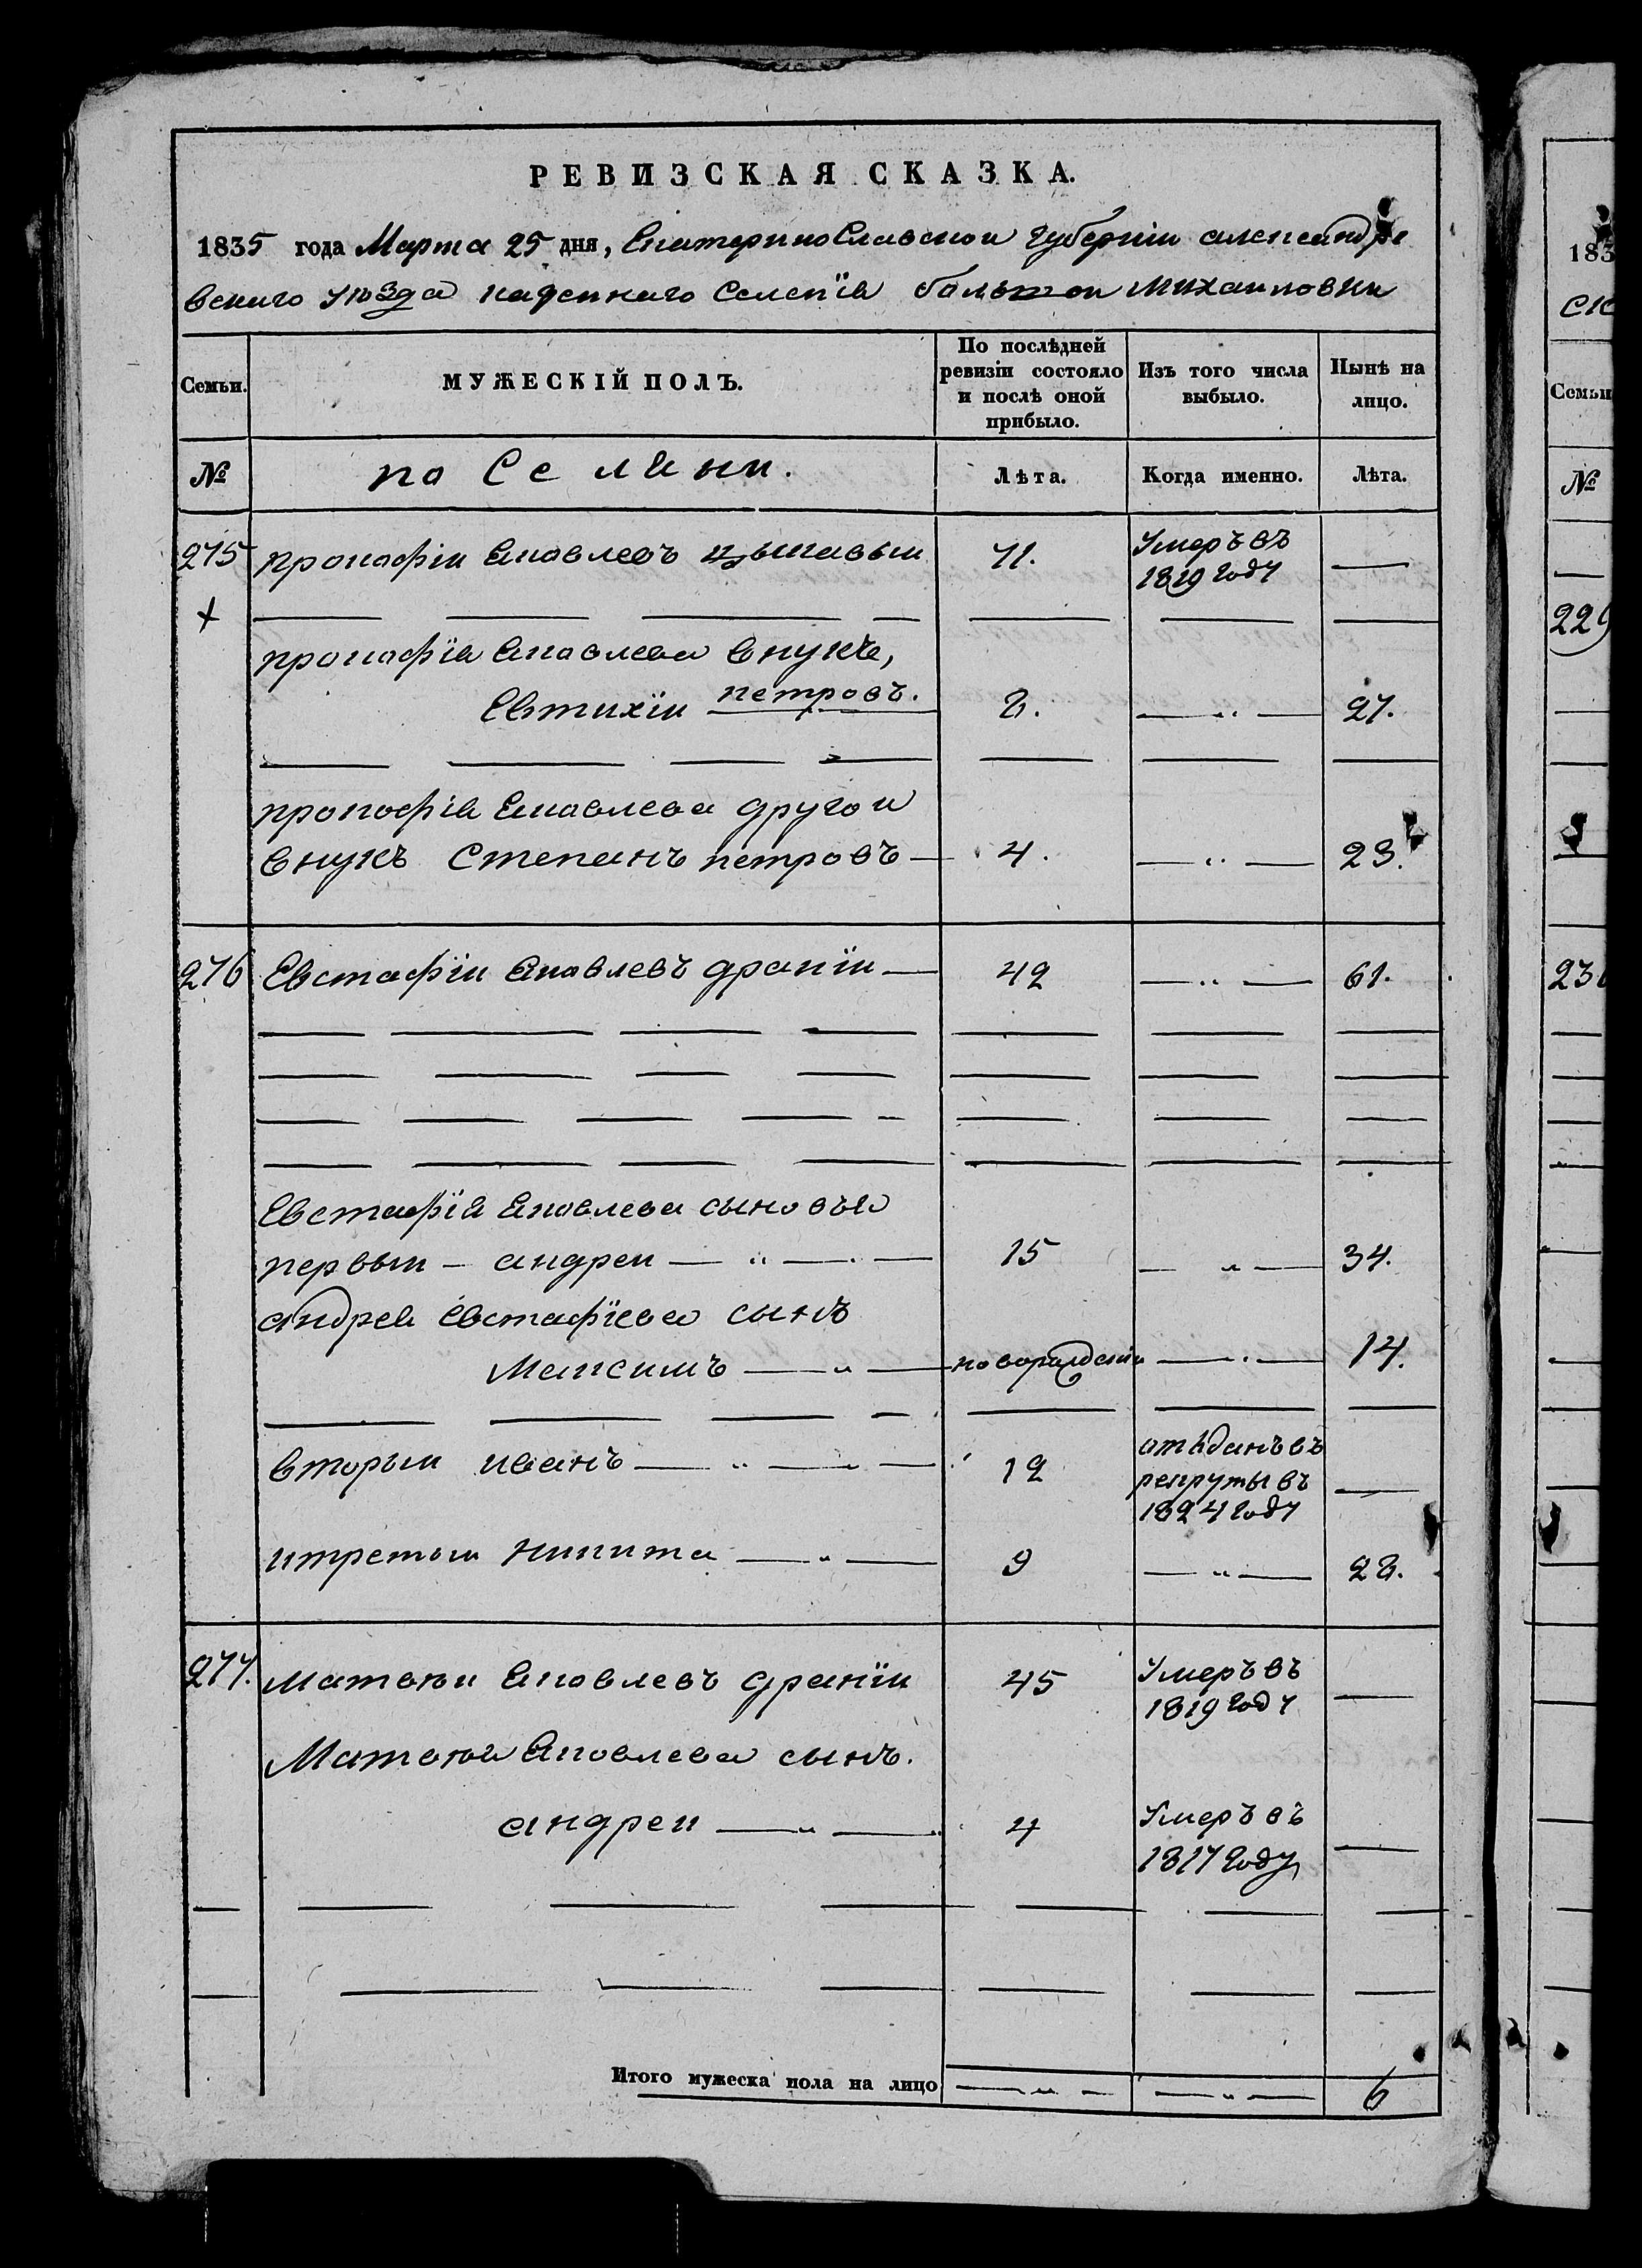 РЕВИЗСКАЯ СКАЗКА.
1835 года Марта 25 дня, Екатеринославской губернiи александро
вскаго уѣзда казеннаго Селенiя большой михаиловки
Семьи.
МУЖЕСКIЙ ПОЛЪ.
По послѣдней ревизiи состояло и послѣ оной прибыло.
Изъ того числа выбыло.
Нынѣ на лицо.
№
Лѣта.
Когда именно.
Лѣта.
275 прокофiи Яковлевъ 71. Умеръ въ
1819 году
прокофiя Яковлева внукъ,
Евтихiи петровъ. 8. 27.
прокофiя Яковлева другои
внукъ Степанъ петровъ 4. 23.
276 Евстафiи Яковлевъ 42 61.
Евстафiя Яковлева сыновья
первыи андреи 15 34.
андрея Евстафiева сынъ
Максимъ новорожденiи 14.
вторыи иванъ 12 отъданъ въ
рекруты въ
1824 году
итретыи никита 9 28.
277. матвеи Яковлевъ 45 Умеръ въ
1819 году
Матвея Яковлева сынъ.
андреи 4 Умеръ въ
1817 году
Итого мужеска пола на лицо 6
183
Семьи
№
229